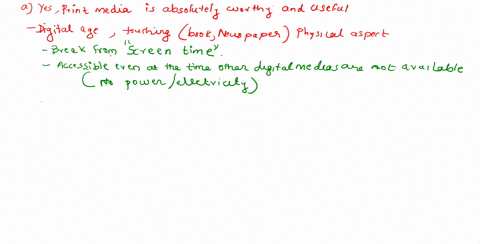 a) Yes, Print media is absolutely worthy and useful
- Digital age, touching (book, Newspaper) Physical aspect
- Break from "Screen time".
- Accessible even at the time other digital medias are not available
(no power/electricity)